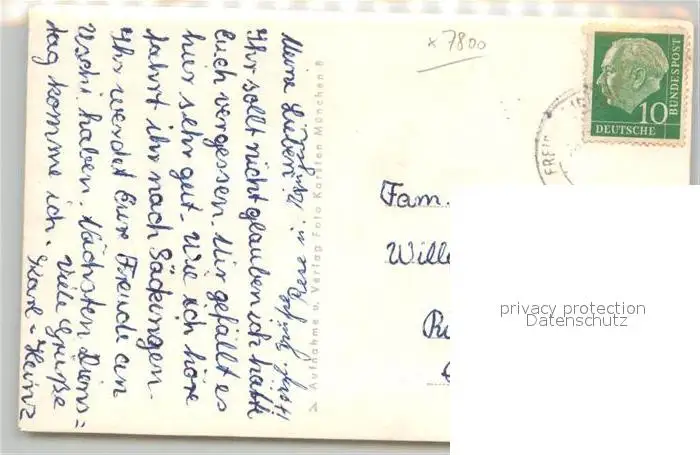 Meine Lieben!
Ihr sollt nicht glauben ich hätte
Euch vergessen. Mir gefällt es
hier sehr gut. Wie ich höre
fahrt ihr nach Säckingen.
Ihr werdet Eure Freude an
Uschi haben. Nächsten Diens=
tag komme ich. Viele Grüße
Karl-Heinz
Aufnahme u. Verlag Foto Karsten München 8
x 7800
10
DEUTSCHE
BUNDESPOST
FREI
Fam.
Will
privacy protection
Datenschutz